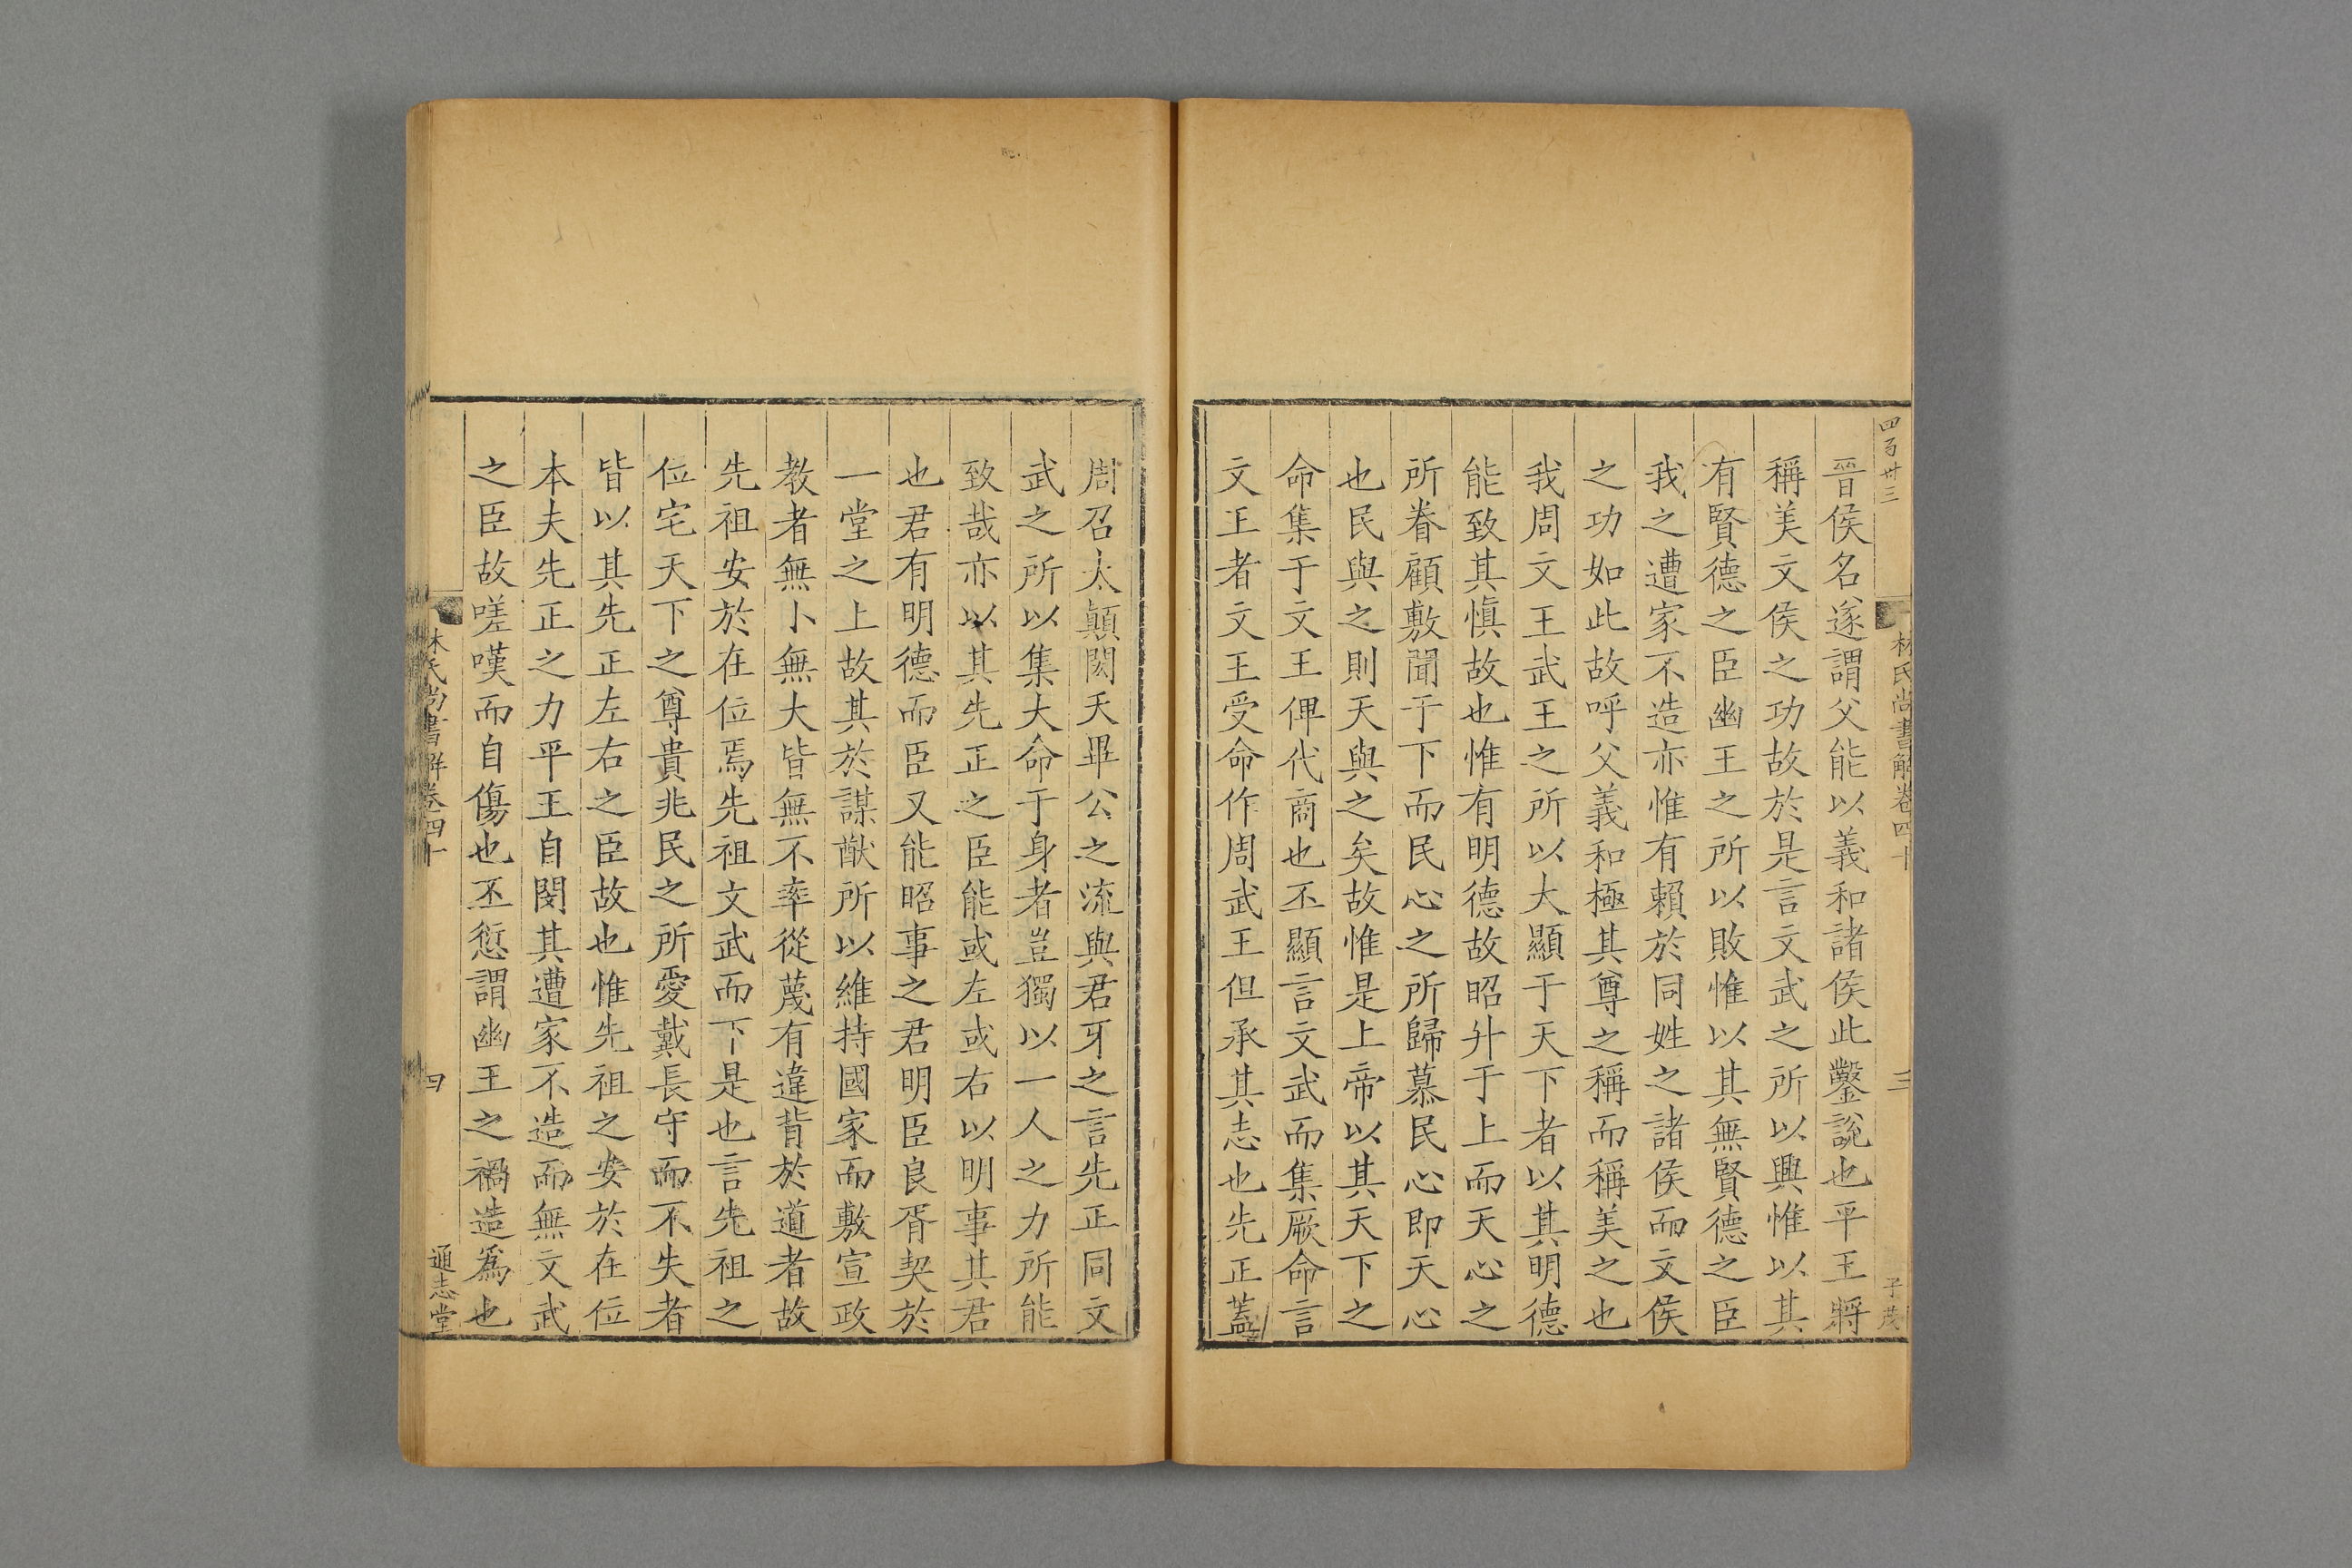 四百卅三
林氏尚書解卷四十
三
子茂
晉侯名遂謂父能以義和諸侯此鑿說也平王將
稱美文侯之功故於是言文武之所以興惟以其
有賢德之臣幽王之所以敗惟以其無賢德之臣
我之遭家不造亦惟有賴於同姓之諸侯而文侯
之功如此故呼父義和極其尊之稱而稱美之也
我周文王武王之所以大顯于天下者以其明德
能致其慎故也惟有明德故昭升于上而天心之
所眷顧敷聞于下而民心之所歸慕民心即天心
也民與之則天與之矣故惟是上帝以其天下之
命集于文王俾代商也丕顯言文武而集厥命言
文王者文王受命作周武王但承其志也先正蓋
周召太顛閎夭畢公之流與君牙之言先正同文
武之所以集大命于身者豈獨以一人之力所能
致哉亦以其先正之臣能或左或右以明事其君
也君有明德而臣又能昭事之君明臣良胥契於
一堂之上故其於謀猷所以維持國家而敷宣政
教者無小無大皆無不率從蔑有違背於道者故
先祖安於在位焉先祖文武而下是也言先祖之
位宅天下之尊貴兆民之所愛戴長守而不失者
皆以其先正左右之臣故也惟先祖之安於在位
本夫先正之力平王自閔其遭家不造而無文武
之臣故嗟嘆而自傷也丕愆謂幽王之禍造爲也
林氏尚書解卷四十
四
通志堂